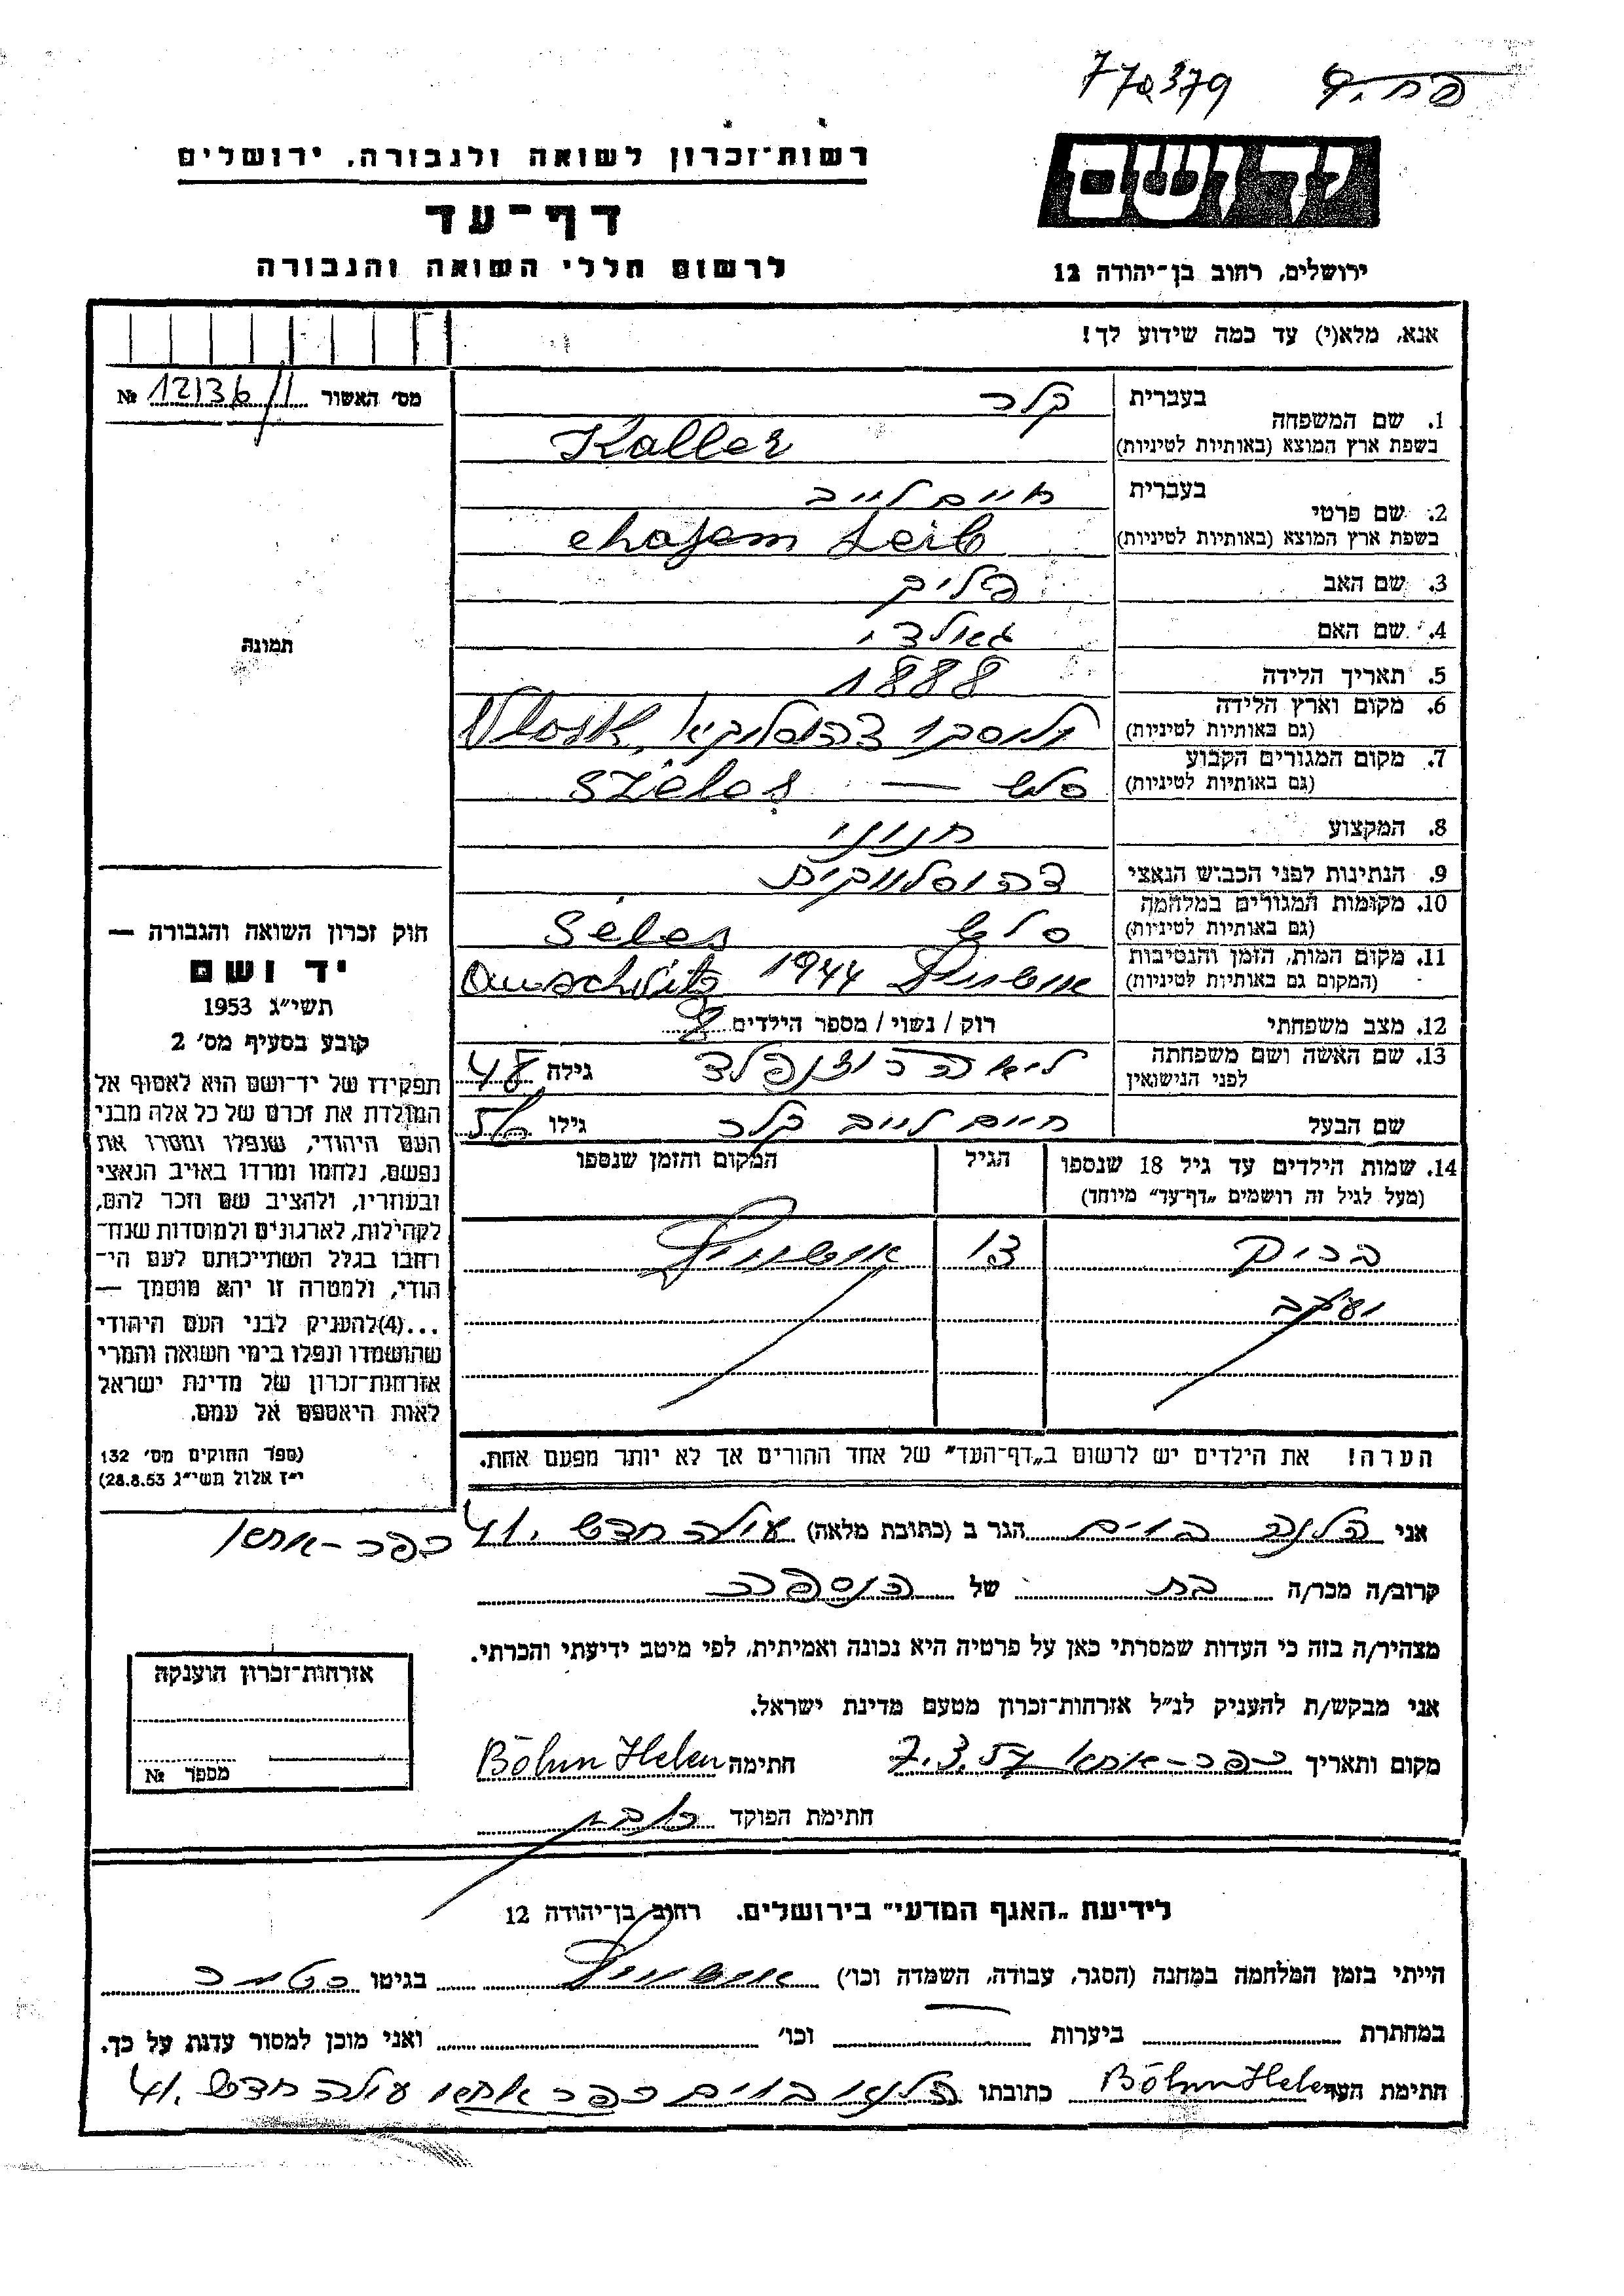 770379
רשות־זכרון לשואה ולגבורה, ירושלים
דף־עד
לרשום חללי השואה והגבורה
יד ושם
ירושלים, רחוב בן־יהודה 12
אנא, מלא(י) עד כמה שידוע לך!
מס׳ האשור 12136/1 №
1. שם המשפחה
בעברית קלר
בשפת ארץ המוצא (באותיות לטיניות) Kaller
2. שם פרטי
בעברית חיים לייב
בשפת ארץ המוצא (באותיות לטיניות) Chajem Leib
3. שם האב
4. שם האם
5. תאריך הלידה 1888
6. מקום וארץ הלידה
(גם באותיות לטיניות)
7. מקום המגורים הקבוע
(גם באותיות לטיניות) סלש — Szeles
8. המקצוע חנוני
9. הנתינות לפני הכבוש הנאצי
10. מקומות המגורים במלחמה
(גם באותיות לטיניות) סלש Seles
11. מקום המות, הזמן והנסיבות
(המקום גם באותיות לטיניות) אושוויץ 1944 Auschvitz
12. מצב משפחתי רוק / נשוי / מספר הילדים 8
13. שם האשה ושם משפחתה
לפני הנישואין גילה 48
שם הבעל חיים לייב קלר גילו 56
14. שמות הילדים עד גיל 18 שנספו
(מעל לגיל זה רושמים „דף־עד״ מיוחד)
הגיל
המקום והזמן שנספו
13 אושוויץ
יעקב
הערה! את הילדים יש לרשום ב„דף־העד״ של אחד ההורים אך לא יותר מפעם אחת.
תמונה
חוק זכרון השואה והגבורה —
יד ושם
תשי״ג 1953
קובע בסעיף מס׳ 2
תפקידו של יד־ושם הוא לאסוף אל
המולדת את זכרם של כל אלה מבני
העם היהודי, שנפלו ומסרו את
נפשם, נלחמו ומרדו באויב הנאצי
ובעוזריו, ולהציב שם וזכר להם,
לקהילות, לארגונים ולמוסדות שנח־
רבו בגלל השתייכותם לעם הי־
הודי, ולמטרה זו יהא מוסמך —
...(4)להעניק לבני העם היהודי
שהושמדו ונפלו בימי השואה והמרי
אזרחות־זכרון של מדינת ישראל
לאות היאספם אל עמם.
(ספר החוקים מס׳ 132
י״ז אלול תשי״ג 28.8.53)
אני הלנה בוים הגר ב (כתובת מלאה) עולה חדש 41. כפר־אתא
קרוב/ה מכר/ה בת של הנספה
מצהיר/ה בזה כי העדות שמסרתי כאן על פרטיה היא נכונה ואמיתית, לפי מיטב ידיעתי והכרתי.
אני מבקש/ת להעניק לנ״ל אזרחות־זכרון מטעם מדינת ישראל.
מקום ותאריך כפר־אתא 7.3.57 חתימה Böhm Helen
חתימת הפוקד
אזרחות־זכרון הוענקה
מספר №
לידיעת „האגף המדעי״ בירושלים, רחוב בן־יהודה 12
הייתי בזמן המלחמה במחנה (הסגר, עבודה, השמדה וכו׳) אושוויץ בגיטו
במחתרת ביערות וכו׳ ואני מוכן למסור עדות על כך.
חתימת העד Böhm Helen כתובתו הלנה בוים כפר אתא עולה חדש 41.